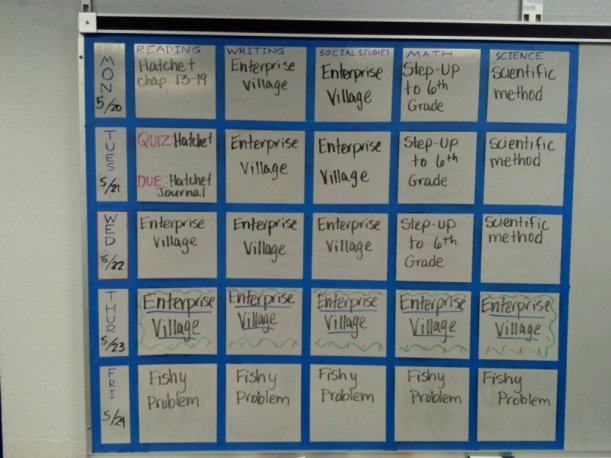 READING WRITING SOCIAL STUDIES MATH SCIENCE
MON 5/20
Hatchet
chap. 13-19
Enterprise
Village
Enterprise
Village
Step-Up
to 6th
Grade
Scientific
method
TUES 5/21
QUIZ: Hatchet
DUE: Hatchet
Journal
Enterprise
Village
Enterprise
Village
Step-Up
to 6th
Grade
Scientific
method
WED 5/22
Enterprise
Village
Enterprise
Village
Enterprise
Village
Step-Up
to 6th
Grade
Scientific
method
THUR 5/23
Enterprise
Village
Enterprise
Village
Enterprise
Village
Enterprise
Village
Enterprise
Village
FRI 5/24
Fishy
Problem
Fishy
Problem
Fishy
Problem
Fishy
Problem
Fishy
Problem